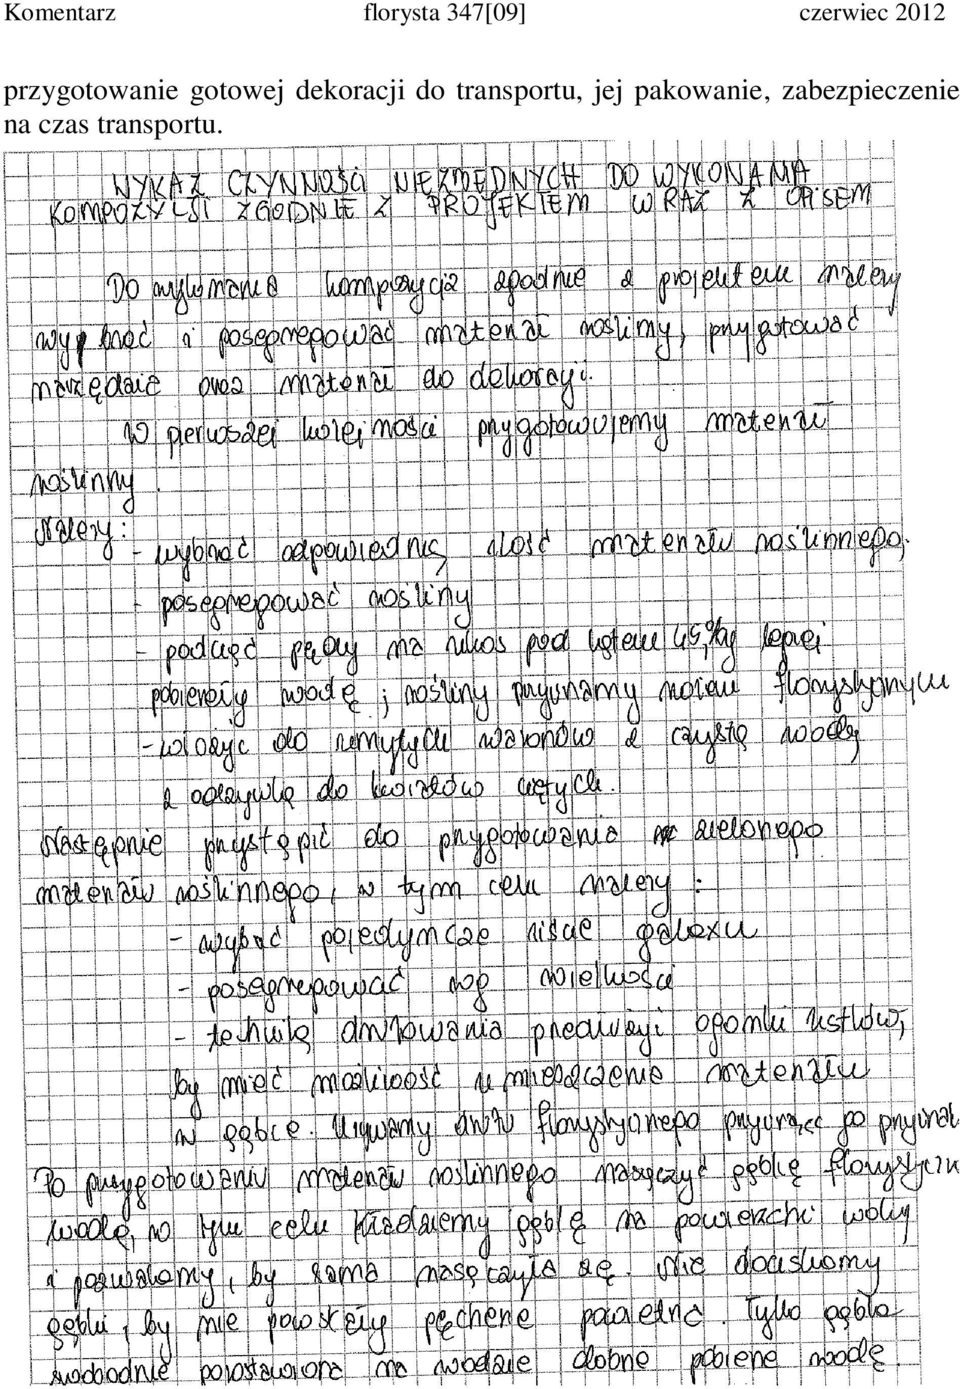 Komentarz florysta 347[09] czerwiec 2012
przygotowanie gotowej dekoracji do transportu, jej pakowanie, zabezpieczenie
na czas transportu.
WYKAZ CZYNNOŚCI NIEZBĘDNYCH DO WYKONANIA
KOMPOZYCJI ZGODNIE Z PROJEKTEM WRAZ Z OPISEM
Do wykonania kompozycja zgodnie z projektem należy
wybrać i posegregować materiał roślinny, przygotować
narzędzia oraz materiał do dekoracji.
W pierwszej kolejności przygotowujemy materiał
roślinny.
Należy:
- wybrać odpowiednią ilość materiału roślinnego,
- posegregować rośliny
- podciąć pędy na ukos pod kątem 45, by lepiej
pobierały wodę; rośliny przycinamy nożem florystycznym
- włożyć do umytych wazonów z czystą wodą
z odżywką do kwiatów ciętych.
Następnie przystąpić do przygotowania zielonego
materiału roślinnego, w tym celu należy:
- wybrać pojedyncze liście galaxu
- posegregować wg wielkości
- techniką drutowania przedłużyć ogonki listków,
by mieć możliwość umieszczenie materiału
w gąbce. Używamy drutu florystycznego
Po przygotowaniu materiału roślinnego nasączyć gąbkę
wodą, w tym celu kładziemy gąbkę na powierzchni wody
i pozwalamy, by sama nasączyła się. Nie dociskamy
gąbki, by nie powstały pęcherze powietrza. Tylko gąbka
swobodnie pozostawiona na wodzie dobrze pobierze wodę.